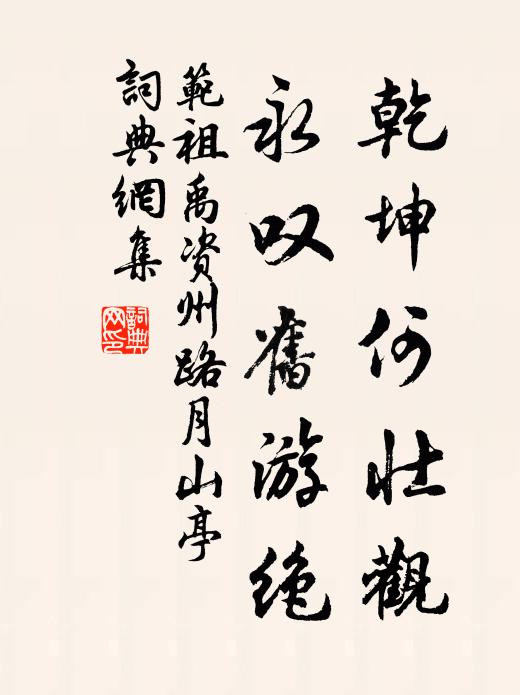 乾坤何壮觀
永叹舊游绝
範祖禹资州路月山亭
詞典網集
詞典
网印